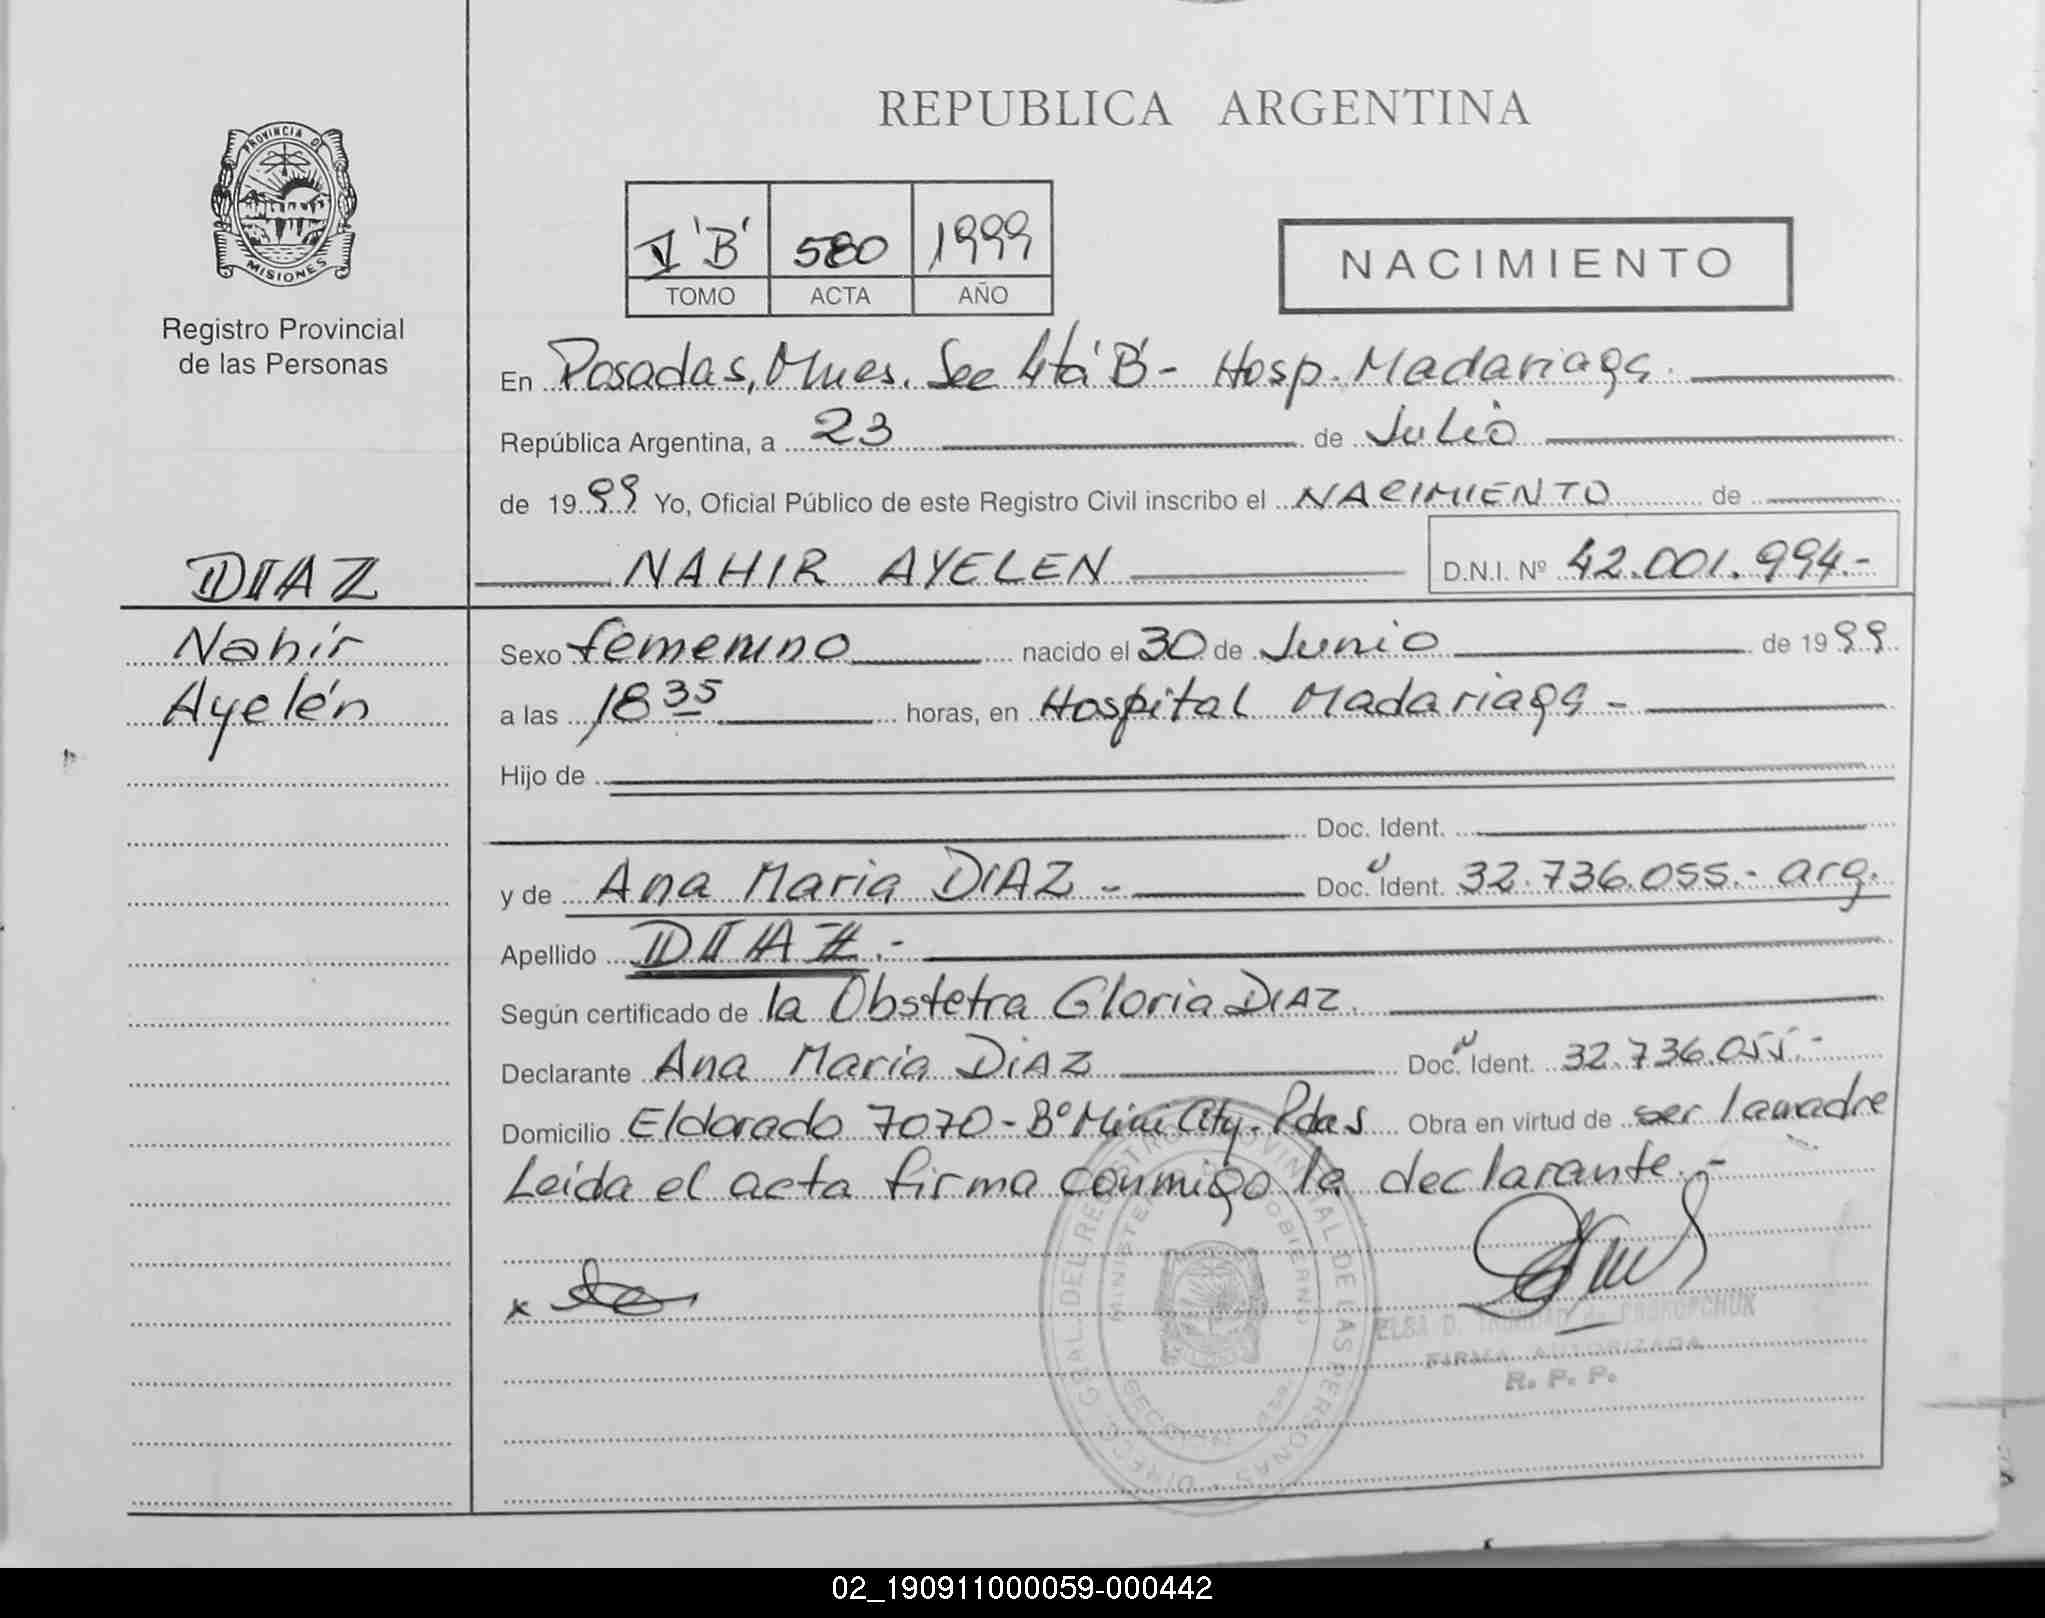 REPUBLICA ARGENTINA
PROVINCIA DE
MISIONES
Registro Provincial
de las Personas
V 'B' 580 1999
TOMO ACTA AÑO
NACIMIENTO
En Posadas, Mnes. Sec 4ta 'B' - Hosp. Madariaga.
República Argentina, a 23 de Julio
de 1999 Yo, Oficial Público de este Registro Civil inscribo el NACIMIENTO de
NAHIR AYELEN D.N.I. Nº 42.001.994.-
DIAZ
Nahir
Ayelén
Sexo femenino nacido el 30 de Junio de 1999
a las 18 35 horas, en Hospital Madariaga -
Hijo de
Doc. Ident.
y de Ana Maria DIAZ - Doc. Ident. 32.736.055.- arg.
Apellido DIAZ.-
Según certificado de la Obstetra Gloria DIAZ.
Declarante Ana Maria DiAZ Doc. Ident. 32.736.055.-
Domicilio Eldorado 7070 - Bº Mini City - Pdas Obra en virtud de ser la madre
Leída el acta firma conmigo la declarante.-
x
DIRECC. GRAL. DEL REGISTRO PROVINCIAL DE LAS PERSONAS
MINISTERIO DE GOBIERNO
ELSA D. TRINIDAD de PROKOPCHUK
FIRMA AUTORIZADA
R. P. P.
02_190911000059-000442